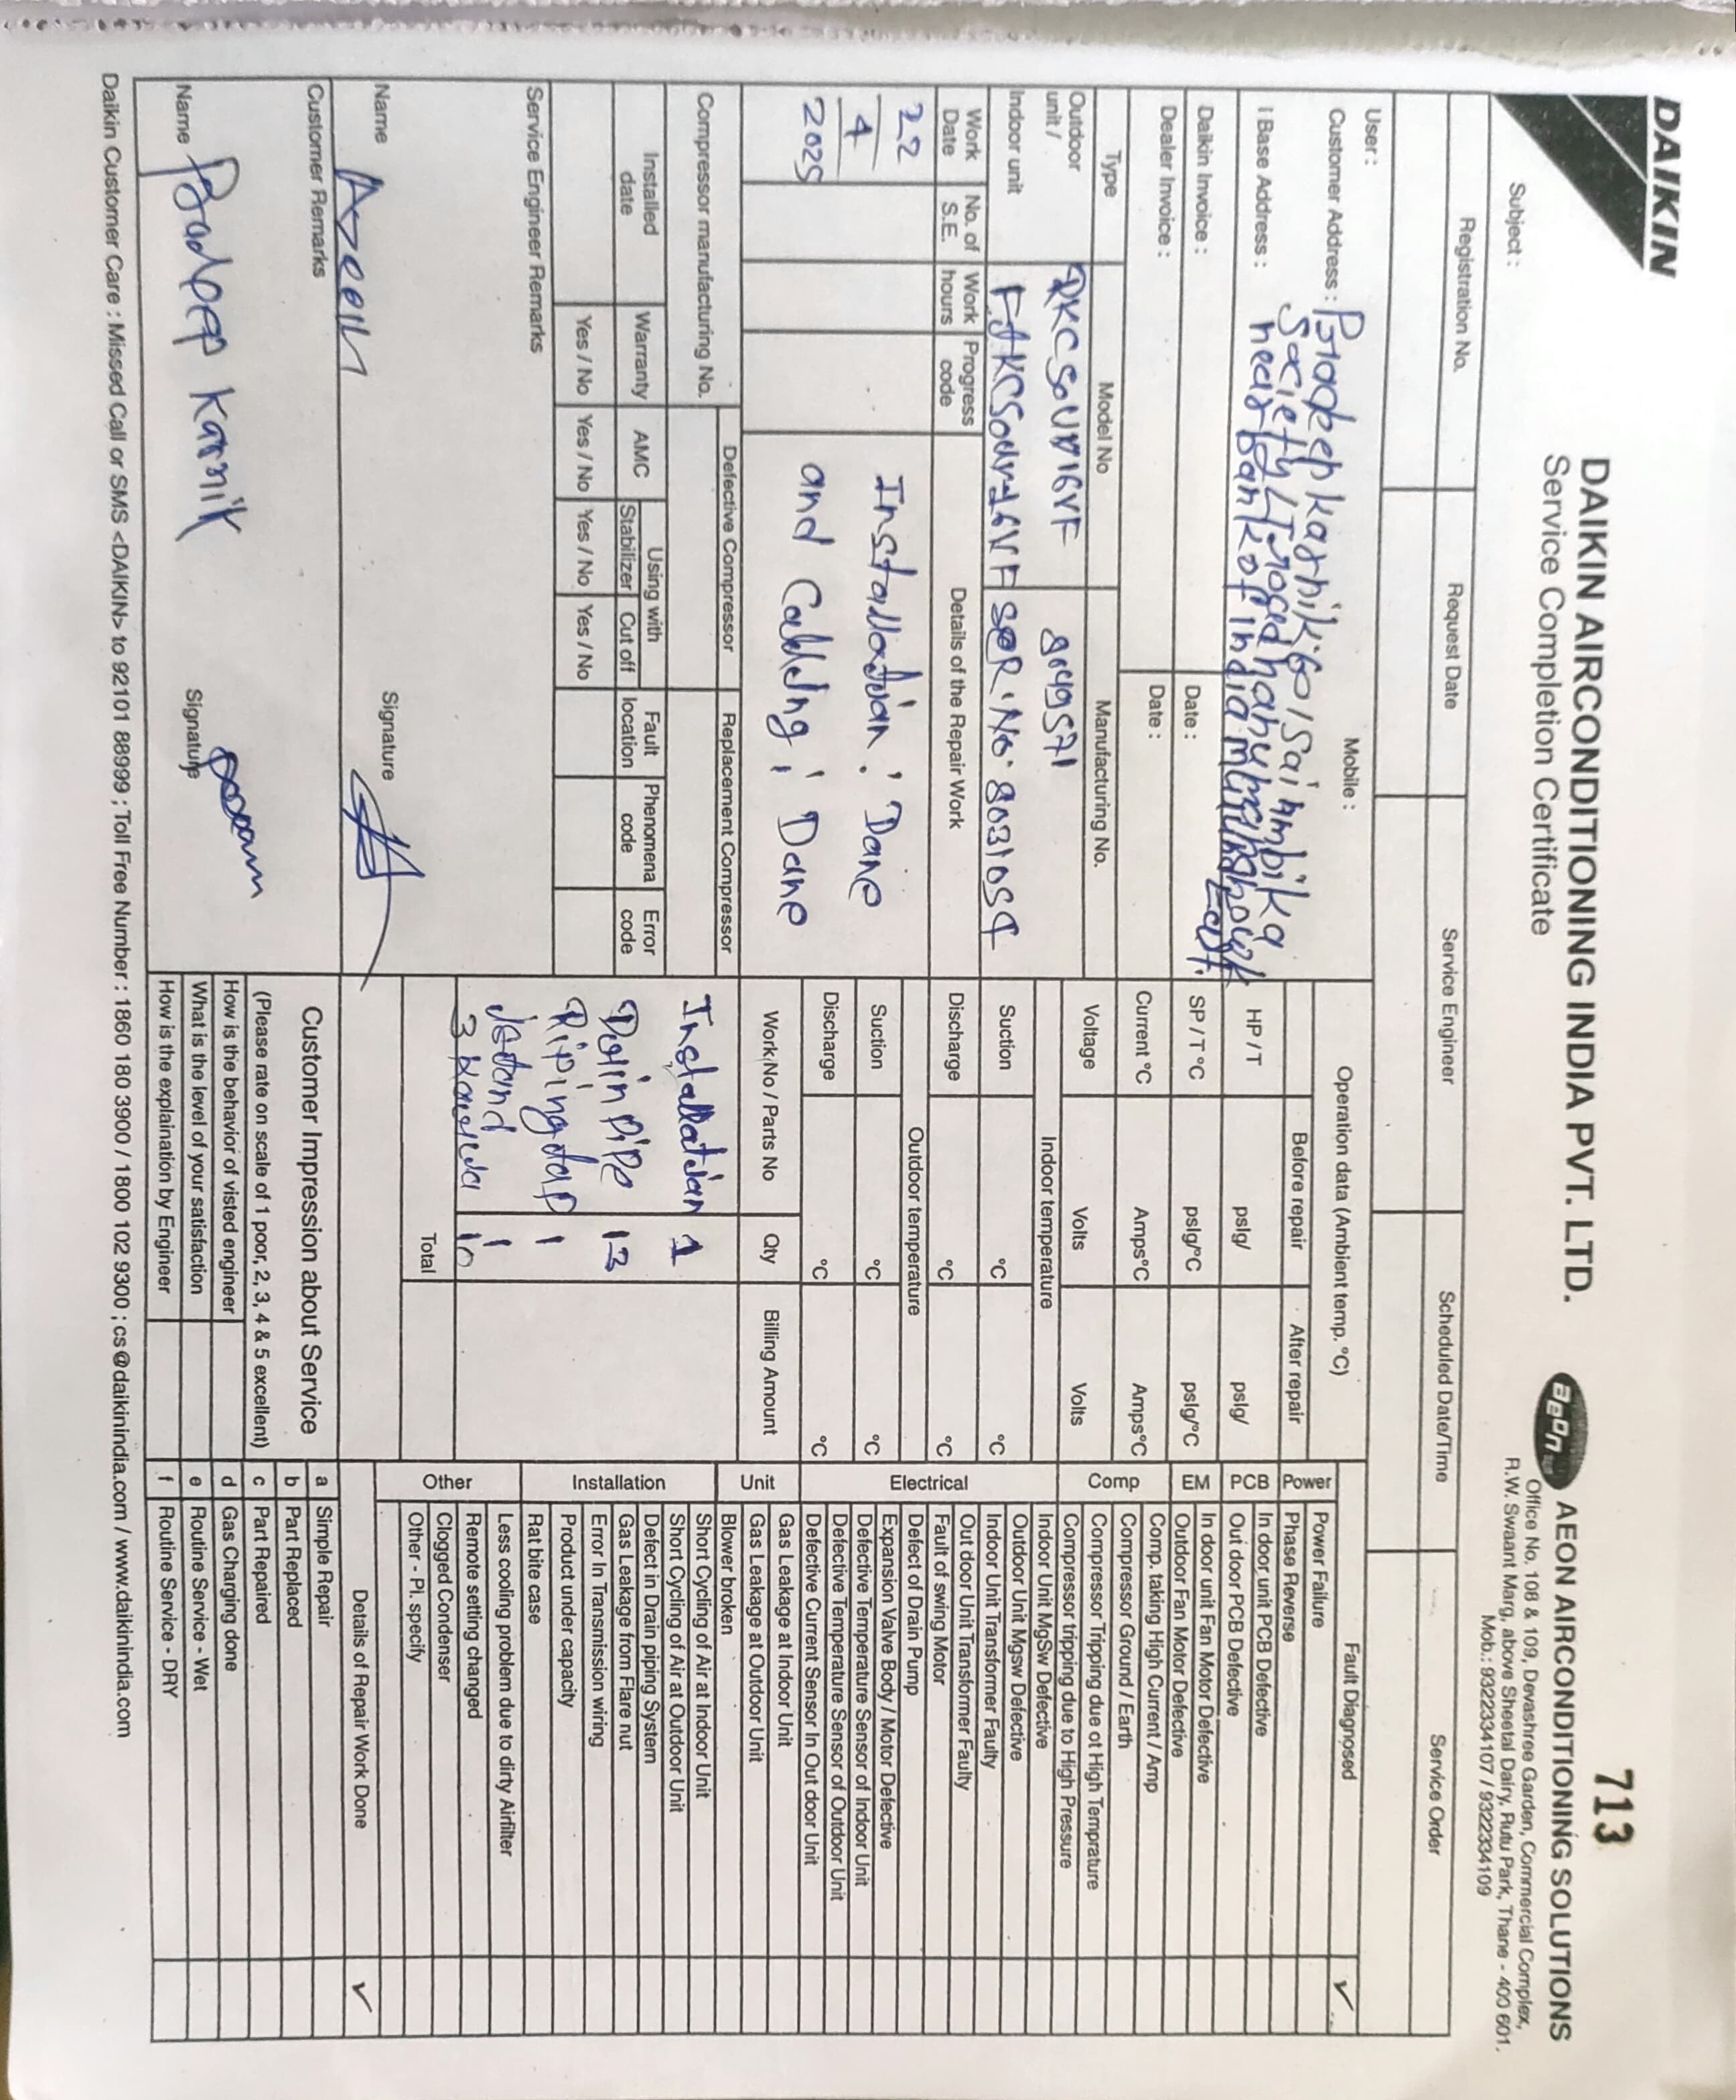 DAIKIN
DAIKIN AIRCONDITIONING INDIA PVT. LTD.
Service Completion Certificate
713
Aeon AEON AIRCONDITIONING SOLUTIONS
Office No. 108 & 109, Devashree Garden, Commercial Complex,
R.W. Swaant Marg, above Sheetal Dairy, Rutu Park, Thane - 400 601.
Mob.: 9322334107 / 9322334109
Subject :
Registration No. Request Date Service Engineer Scheduled Date/Time Service Order
User : Mobile :
Customer Address : Pradeep karnik, 601 Sai Ambika
Society
I Base Address : near bank of india
East.
Daikin Invoice : Date :
Dealer Invoice : Date :
Type Model No Manufacturing No.
Outdoor unit /
Indoor unit
g049571
SER.No. g031059
Work Date No. of S.E. Work hours Progress code Details of the Repair Work
22
4
2025
Installation : Done
and Calling : Done
Compressor manufacturing No. Defective Compressor Replacement Compressor
Installed date Warranty AMC Using with Stabilizer Cut off Fault location Phenomena code Error code
Yes / No Yes / No Yes / No Yes / No
Service Engineer Remarks
Name Signature
Customer Remarks
Name Pradeep Karnik Signature
Operation data (Ambient temp. °C)
Before repair After repair
HP / T psig/ psig/
SP / T °C psig/°C psig/°C
Current °C Amps°C Amps°C
Voltage Volts Volts
Indoor temperature
Suction °C °C
Discharge °C °C
Outdoor temperature
Suction °C °C
Discharge °C °C
Work/No / Parts No Qty Billing Amount
Installation 1
Drin pipe 13
Riping tap 1
stand 1
3 10
Total
Customer Impression about Service
(Please rate on scale of 1 poor, 2, 3, 4 & 5 excellent)
How is the behavior of visted engineer
What is the level of your satisfaction
How is the explaination by Engineer
Fault Diagnosed ✓
Power
Power Failure
Phase Reverse
PCB
In door unit PCB Defective
Out door PCB Defective
EM
In door unit Fan Motor Defective
Outdoor Fan Motor Defective
Comp
Comp. taking High Current / Amp
Compressor Ground / Earth
Compressor Tripping due ot High Temprature
Compressor tripping due to High Pressure
Electrical
Indoor Unit MgSw Defective
Outdoor Unit Mgsw Defective
Indoor Unit Transformer Faulty
Out door Unit Transformer Faulty
Fault of swing Motor
Defect of Drain Pump
Expansion Valve Body / Motor Defective
Defective Temperature Sensor of Indoor Unit
Defective Temperature Sensor of Outdoor Unit
Defective Current Sensor In Out door Unit
Unit
Gas Leakage at Indoor Unit
Gas Leakage at Outdoor Unit
Blower broken
Installation
Short Cycling of Air at Indoor Unit
Short Cycling of Air at Outdoor Unit
Defect in Drain piping System
Gas Leakage from Flare nut
Error In Transmission wiring
Product under capacity
Rat bite case
Other
Less cooling problem due to dirty Airfilter
Remote setting changed
Clogged Condenser
Other - Pl. specify
Details of Repair Work Done ✓
a Simple Repair
b Part Replaced
c Part Repaired
d Gas Charging done
e Routine Service - Wet
f Routine Service - DRY
Daikin Customer Care : Missed Call or SMS <DAIKIN> to 92101 88999 ; Toll Free Number : 1860 180 3900 / 1800 102 9300 ; cs@daikinindia.com / www.daikinindia.com